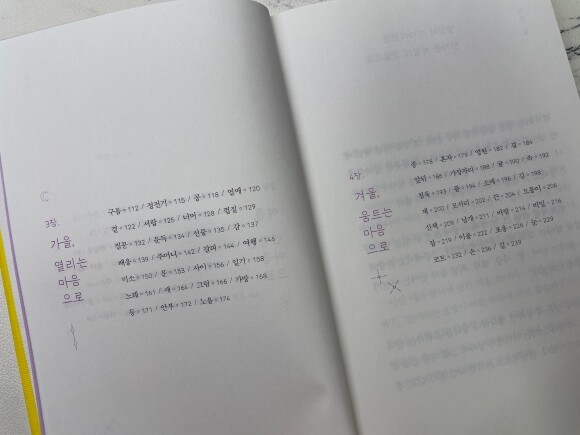 3장.
가을,
열리는
마음
으로
구름◦112 / 정전기◦115 / 꿈◦118 / 열매◦120
겹◦122 / 서랍◦125 / 너머◦128 / ◦129
질문◦132 / 문득◦134 / 선물◦135 / 감◦137
배웅◦139 / 주머니◦142 / 갈피◦144 / 여행◦146
미소◦150 / 문◦153 / 사이◦156 / 일기◦158
노래◦161 / 새◦164 / 그림◦166 / 가방◦168
등◦171 / 안부◦172 / 노을◦174
4장.
겨울,
움트는
마음
으로
종◦178 / 혼자◦179 / 영원◦182 / 길◦184
앞뒤◦186 / 가장자리◦188 / 귤◦190 / 속◦192
침묵◦193 / 품◦194 / 소매◦196 / ◦198
책◦200 / 모서리◦202 / 끈◦204 / ◦206
산책◦209 / 낱개◦211 / 바람◦214 / 비밀◦216
잠◦219 / 이불◦222 / 포옹◦226 / 눈◦229
코트◦232 / 손◦236 / 집◦239